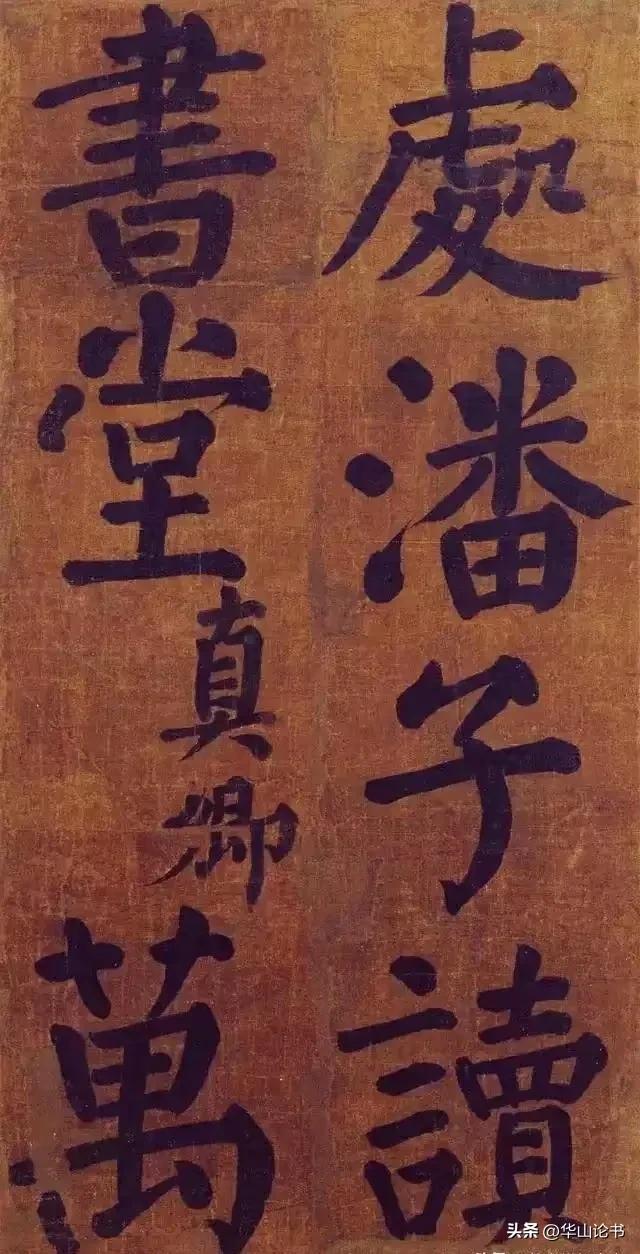 處潘子讀
書堂真卿萬
头条 @华山论书